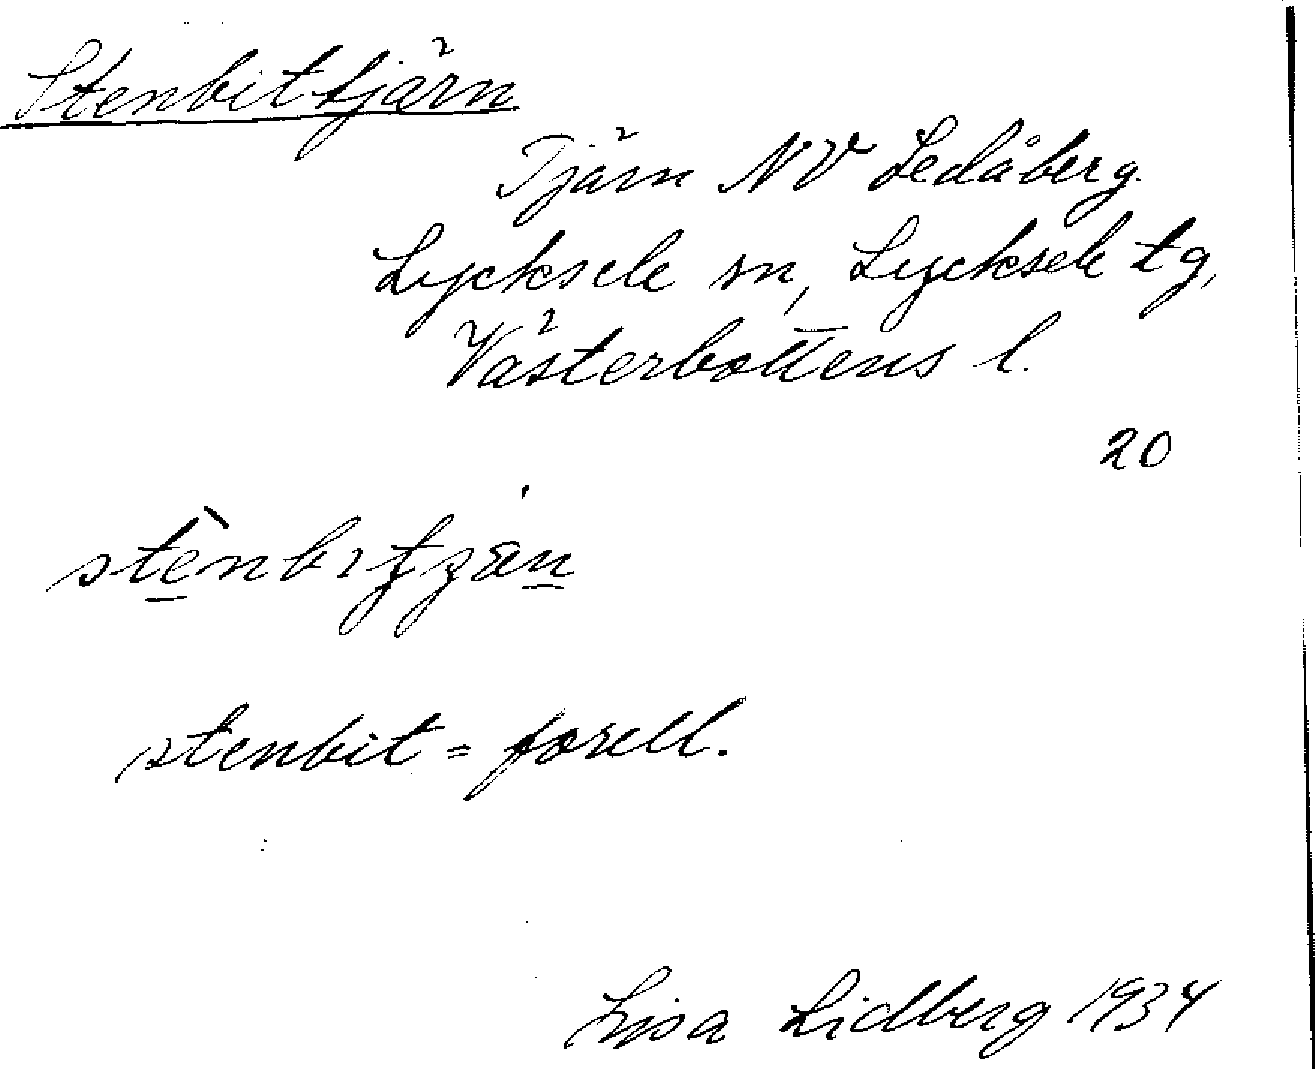 Stenbittjärn
Tjärn NV Ledåberg.
Lycksele sn, Lycksele tg,
Västerbottens l.
20
stenbit = forell.
Lisa Lidberg 1934